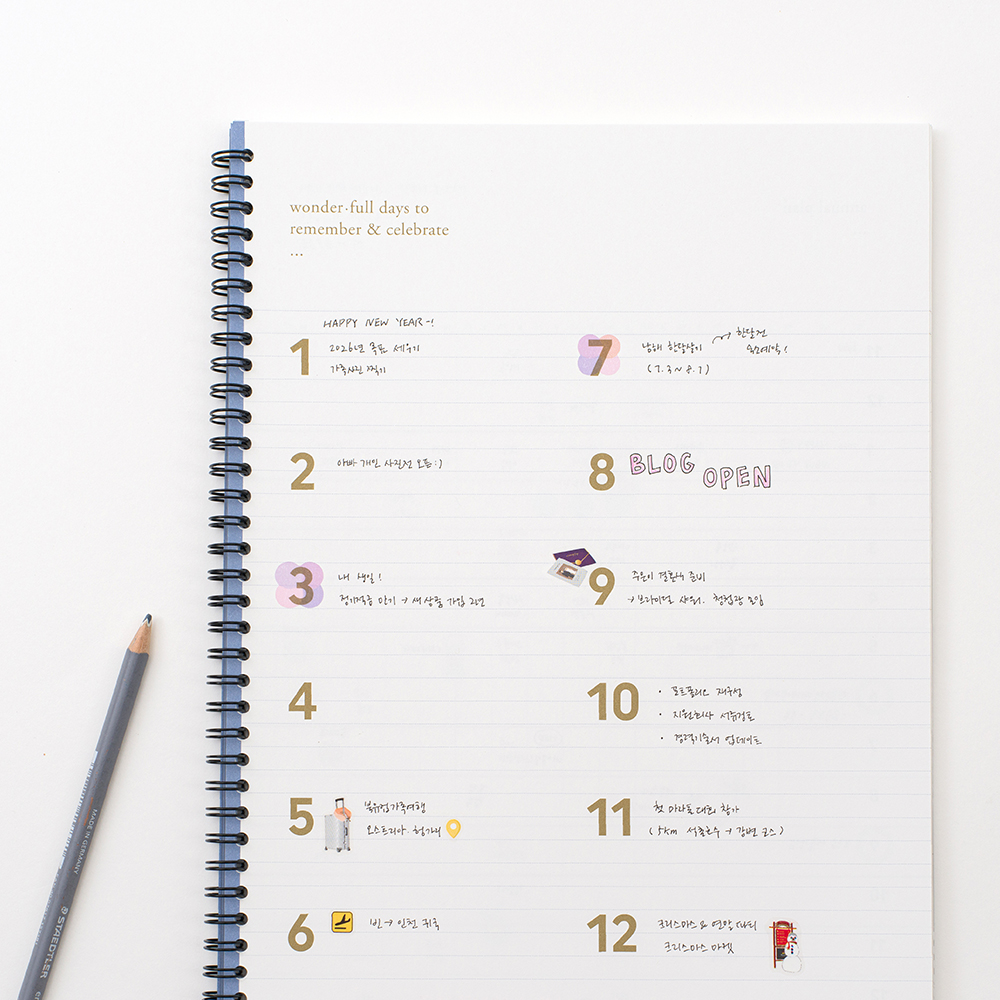 wonder·full days to
remember & celebrate
...
HAPPY NEW YEAR~!
1
2026년 목표 세우기
가족사진 찍기
2
아빠 개인 사진전 오픈 :)
3
내 생일!
정기적금 만기 → 새상품 가입 2년
4
5
북유럽가족여행
오스트리아. 헝가리
6
빈 → 인천 귀국
7
남해 한달살이
(7.3 ~ 8.1)
한달전
숙소예약!
8
BLOG OPEN
9
주은이 결혼식 준비
→ 브라이덜 샤워. 청첩장 모임
10
· 포트폴리오 재구성
· 지원회사 서류검토
· 경력기술서 업데이트
11
첫 마라톤 대회 참가
(5km 서호호수 → 강변 코스)
12
크리스마스 & 연말 파티
크리스마스 마켓
MADE IN GERMANY
STAEDTLER